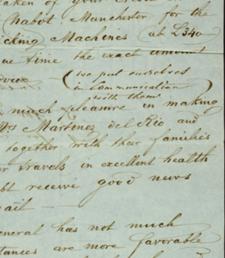 taken of your
Chabot Manchester for the
cking Machines at £340
time the exact amount
(we put ourselves
in communication
with them)
much pleasure in making
Martinez del Rio and
together with their families
travels in excellent health
receive good news
ail —
eneral has not much
tances are more favorable